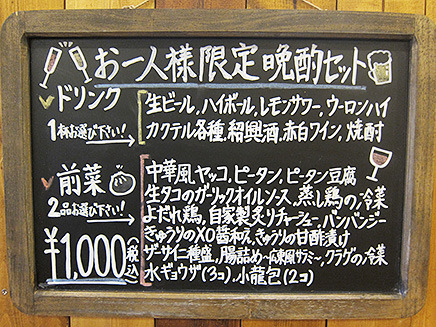 お一人様限定晩酌セット
ドリンク
1杯お選び下さい!
生ビール,ハイボール,レモンサワー,ウーロンハイ
カクテル各種,紹興酒,赤白ワイン,焼酎
前菜
2品お選び下さい!
中華風ヤッコ,ピータン,ピータン豆腐
生タコのガーリックオイルソース,蒸し鶏の冷菜
よだれ鶏,自家製炙りチャーシュー,バンバンジー
きゅうりのXO醤和え,きゅうりの甘酢漬け
ザーサイ二種盛,腸詰め〜広東風サラミ〜,クラゲの冷菜
水ギョウザ(3コ),小籠包(2コ)
¥1,000(税込)